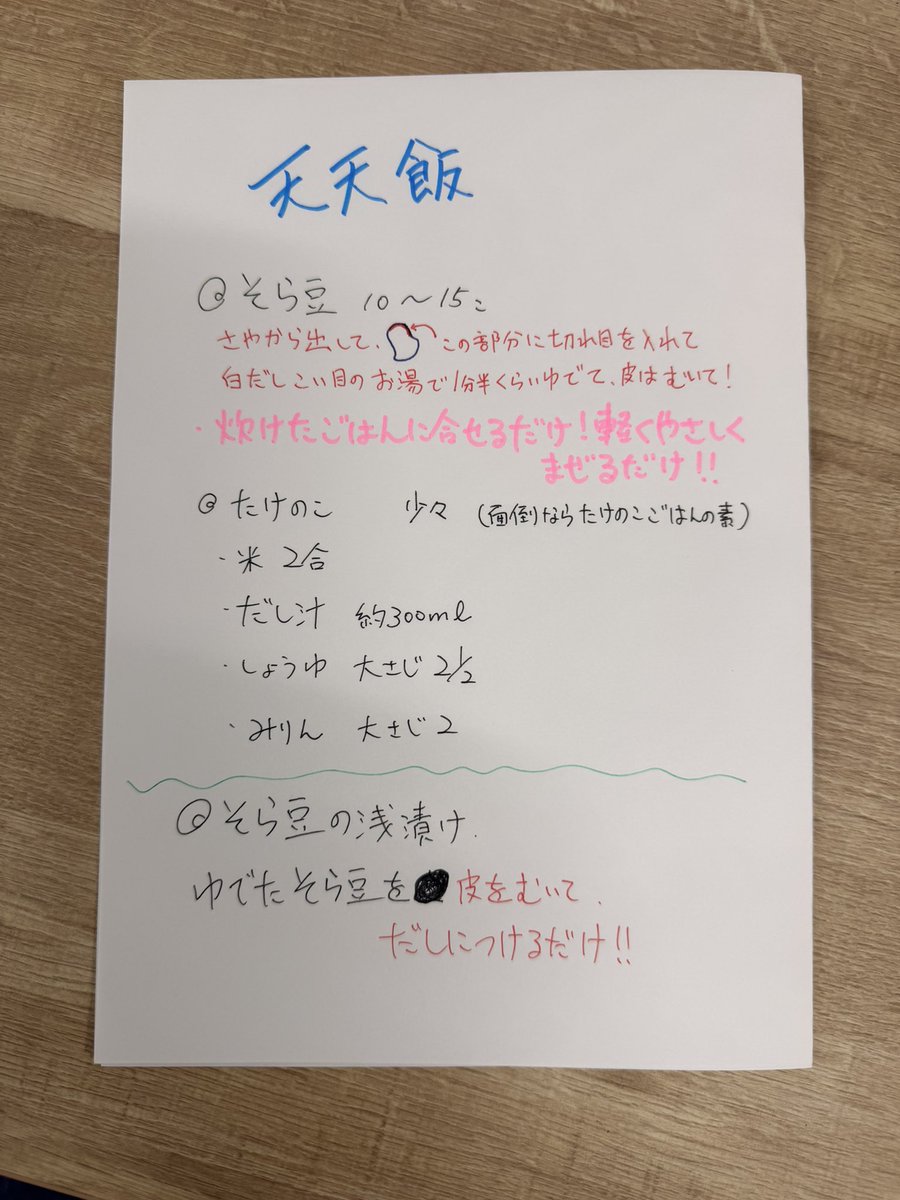 天天飯
そら豆 10〜15こ
さやから出して、この部分に切れ目を入れて
白だしこい目のお湯で1分半くらいゆでて、皮はむいて!
・炊けたごはんに合せるだけ!軽くやさしく
まぜるだけ!!
たけのこ 少々 (面倒ならたけのこごはんの素)
・米 2合
・だし汁 約300ml
・しょうゆ 大さじ 2 1/2
・みりん 大さじ 2
そら豆の浅漬け.
ゆでたそら豆を皮をむいて、
だしにつけるだけ!!